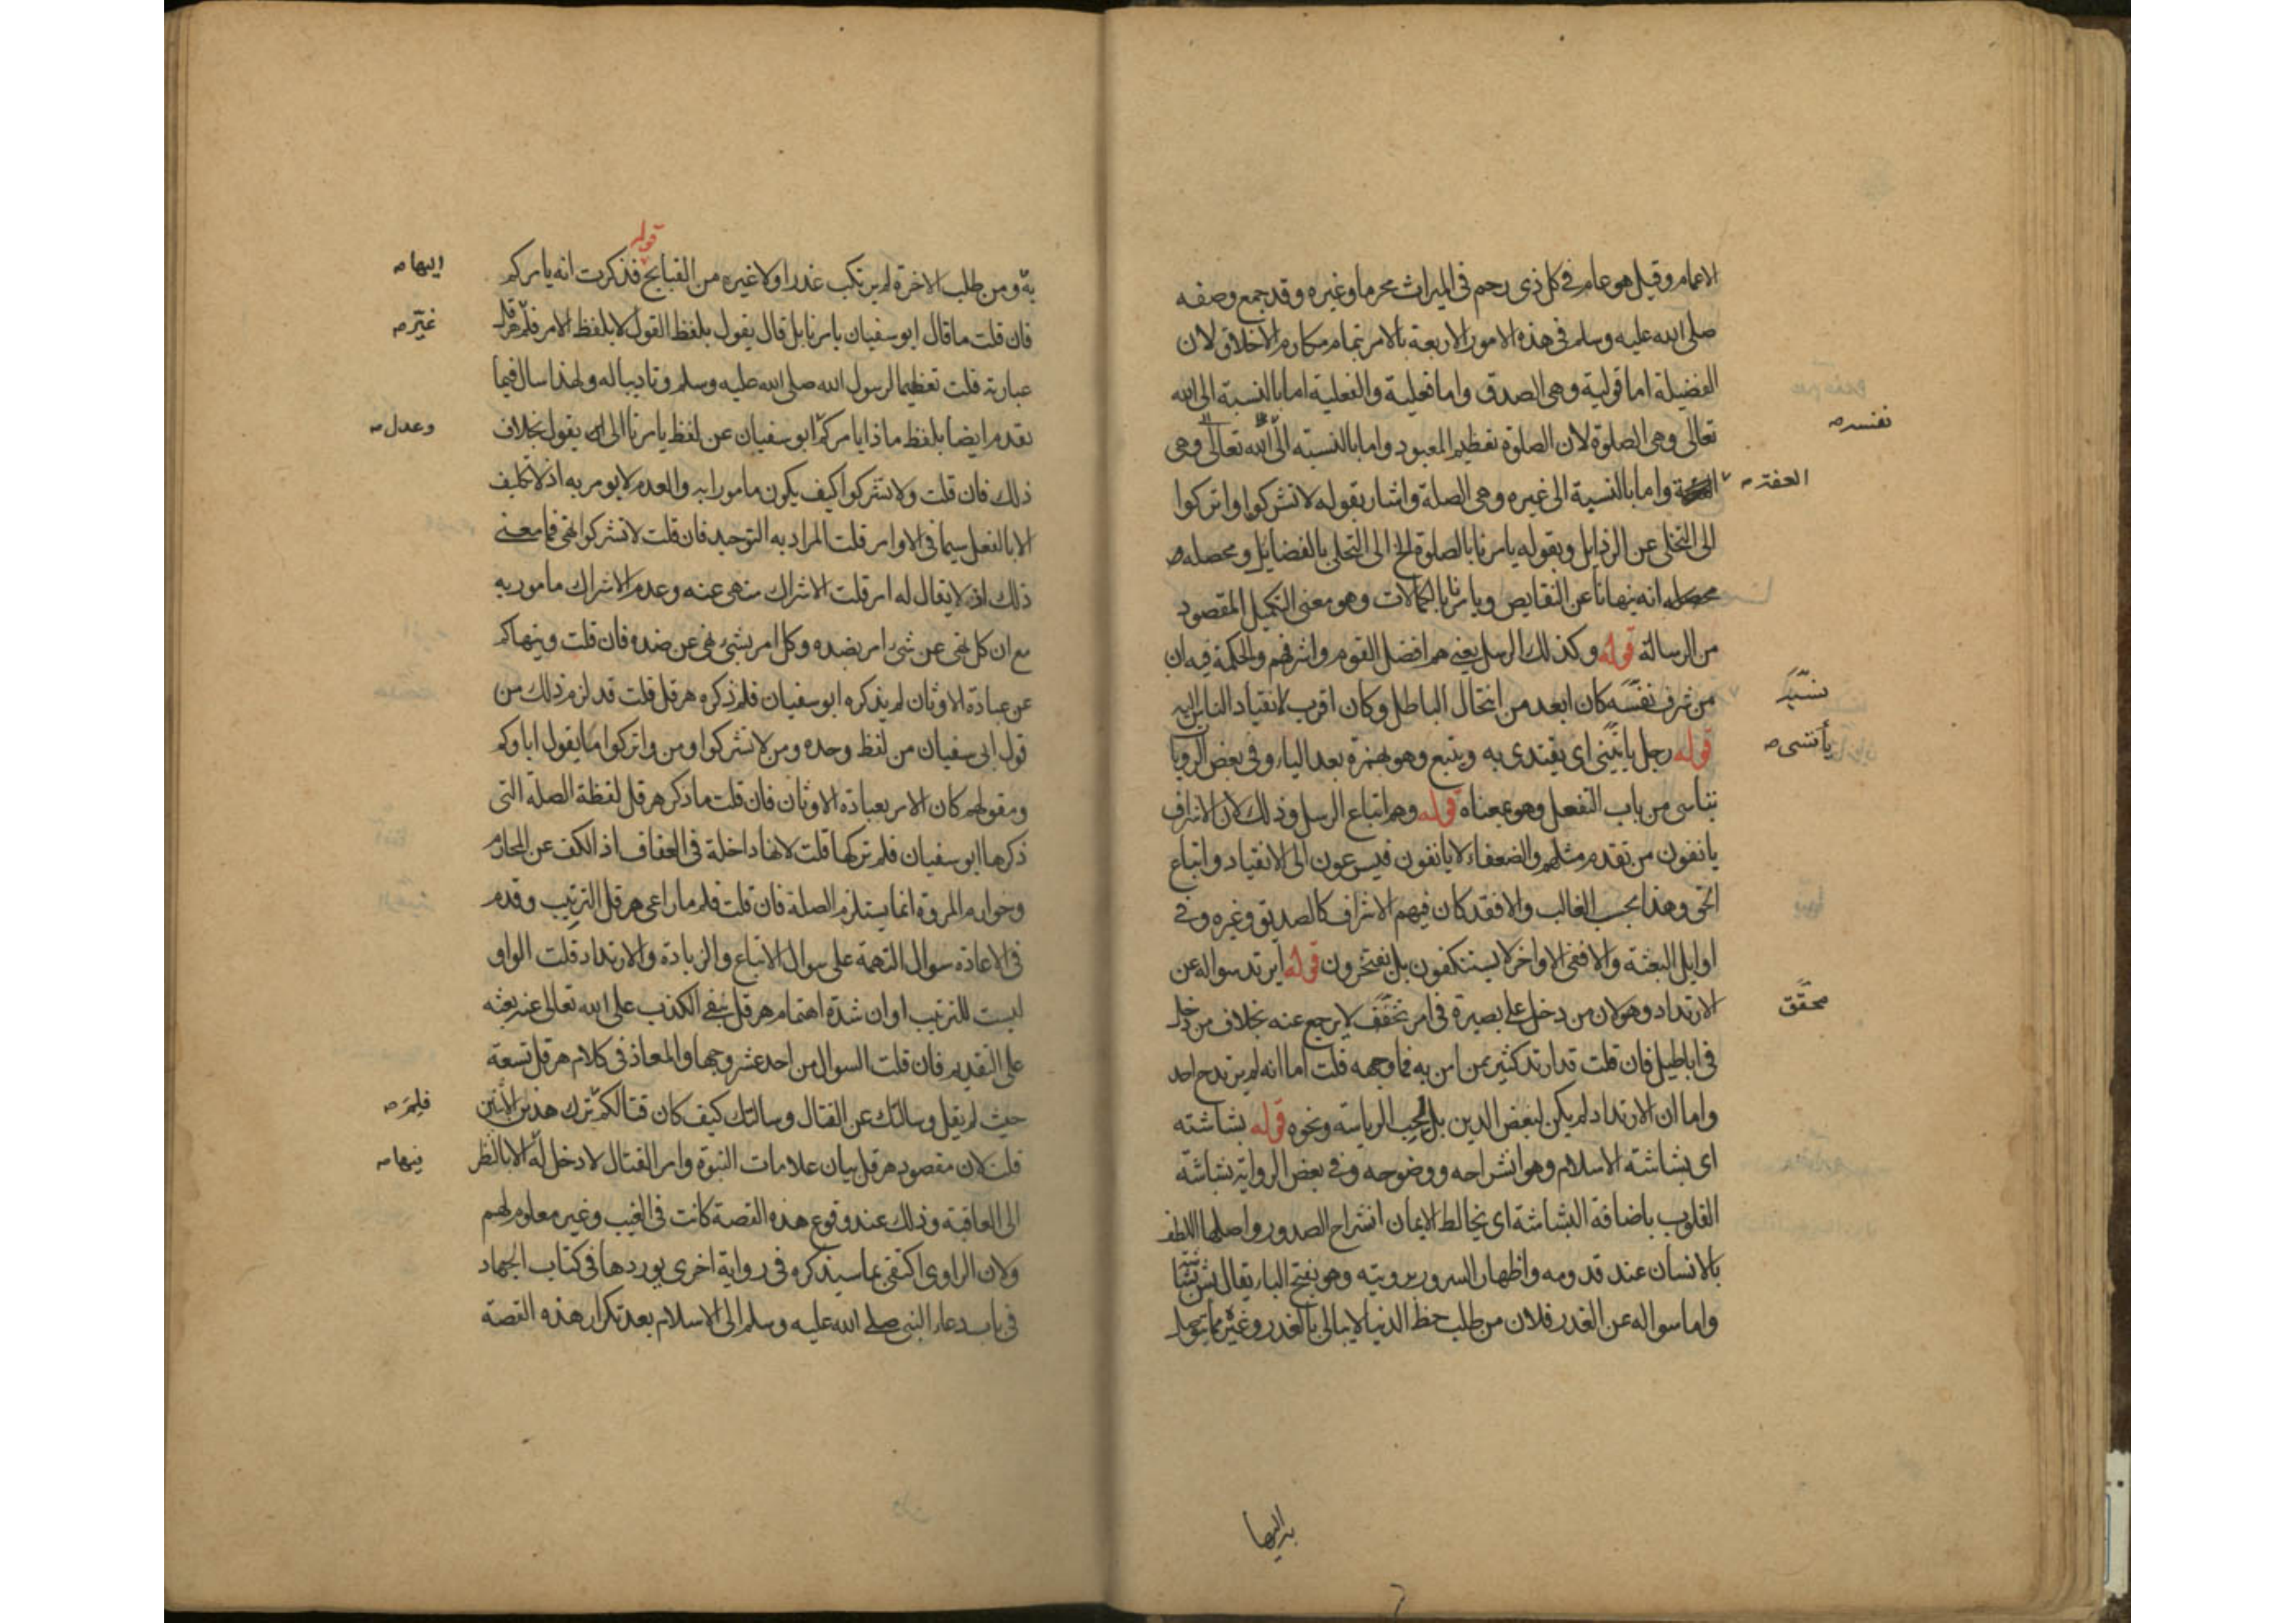 الاعمام وقيل هو عام في كل ذى رحم فى الميراث محرما وغيره وقد جمع وصفه
صلى الله عليه وسلم فى هذه الامور الاربعة بالامر بتمام مكارم الاخلاق لان
الفضيلة اما قولية وهى الصدق واما فعلية والفعلية اما بالنسبة الى الله
تعالى وهى الصلوة لان الصلوة تعظيم المعبود واما بالنسبة الى الله تعالى وهى
نفسه صح
واما بالنسبة الى غيره وهى الصلة واشار بقوله لا تشركوا واتركوا
العفة صح
الى التخلى عن الرذايل وبقوله يامرنا بالصلوة الخ الى التحلى بالفضايل ومحصله
محصله انه ينهانا عن النقايص ويامرنا بالكمالات وهو معنى التكميل المقصود
من الرسالة قوله وكذلك الرسل يعنى هم افضل القوم واشرفهم والحكمة فيه ان
من شرف نفسه كان ابعد من انتحال الباطل وكان اقرب لانقياد الناس اليه
قوله رجل ياتسى اى يقتدى به ويتبع وهو بهمزة بعد الياء وفى بعض الروايا
يأتسى صح
يتاسى من باب التفعل وهو بمعناه قوله وهم اتباع الرسل وذلك لان الاشراف
يانفون من تقدم مثلهم والضعفاء لا يانفون فيسرعون الى الانقياد واتباع
الحق وهذا بحسب الغالب والا فقد كان فيهم الاشراف كالصديق وغيره وفى
اوايل البعثة والا ففى الاواخر لا يستنكفون بل يفتخرون قوله ايرتد سواله عن
الارتداد وهو لان من دخل على بصيرة فى امر محقق لا يرجع عنه بخلاف من دخل
محقق
فى اباطيل فان قلت قد ارتد كثير ممن امن به فما وجهه قلت اما انه لم يرتدح احد
واما ان الارتداد لم يكن لبغض الدين بل لحب الرياسة ونحوه قوله بشاشته
اى بشاشة الاسلام وهو انشراحه ووضوحه وفى بعض الرواية بشاشة
القلوب باضافة البشاشة اى يخالط الايمان انشراح الصدور واصلها اللطف
بالانسان عند قدومه واظهار السرور برويته وهو بفتح الباء يقال بش بشاشة
واما سواله عن الغدر فلان من طلب حظ الدنيا لا يبالى بالغدر وغيره مما يتوصل
به اليها
به ومن طلب الاخرة لم يرتكب غدرا ولا غيره من القبايح قوله فذكرت انه يامركم
اليها صح
فان قلت ما قال ابو سفيان يامرنا بل قال يقول بلفظ القول لا بلفظ الامر فلم هرقل
غير صح
عبارته قلت تعظيما لرسول الله صلى الله عليه وسلم وتاديبا له ولهذا سال فيما
تقدم ايضا بلفظ ماذا يامركم ابو سفيان عن لفظ يامرنا الى يقول بخلاف
وعدل صح
ذلك فان قلت ولا تشركوا كيف يكون مامورا به والعدم لا يومر به اذ لا تكليف
الا بالفعل سيما فى الاوامر قلت المراد به التوحيد فان قلت لا تشركوا نهى فما معنى
ذلك اذ لا يقال له امر قلت الاشراك منهى عنه وعدم الاشراك مامور به
مع ان كل نهى عن شئ امر بضده وكل امر بشئ نهى عن ضده فان قلت وينهاكم
عن عبادة الاوثان لم يذكره ابو سفيان فلم ذكره هرقل قلت قد لزم ذلك من
قول ابى سفيان من لفظ وحده ومن لا تشركوا ومن واتركوا ما يقول اباوكم
ومقولهم كان الامر بعبادة الاوثان فان قلت ما ذكر هرقل لفظة الصلة التى
ذكرها ابو سفيان فلم تركها قلت لانها داخلة فى العفاف اذ الكف عن المحارم
وخوارم المروة انما يستلزم الصلة فان قلت فلم ما راعى هرقل الترتيب وقدم
فى الاعادة سوال التهمة على سوال الاتباع والزيادة والارتداد قلت الواو
ليست للترتيب او ان شدة اهتمام هرقل بنفى الكذب على الله تعالى عنه بعثه
على التقديم فان قلت السوال من احد عشر وجها والمعاد فى كلام هرقل تسعة
حيث لم يقل وسالتك عن القتال وسالتك كيف كان قتالكم ترك هذين الاثنين
فلم صح
قلت لان مقصود هرقل بيان علامات النبوة وامر القتال لا دخل له الا بالنظر
فيها صح
الى العاقبة وذلك عند وقوع هذه القصة كانت فى الغيب وغير معلوم لهم
ولان الراوى اكتفى بما سيذكره فى رواية اخرى يوردها فى كتاب الجهاد
فى باب دعاء النبى صلى الله عليه وسلم الى الاسلام بعد تكرار هذه القصة